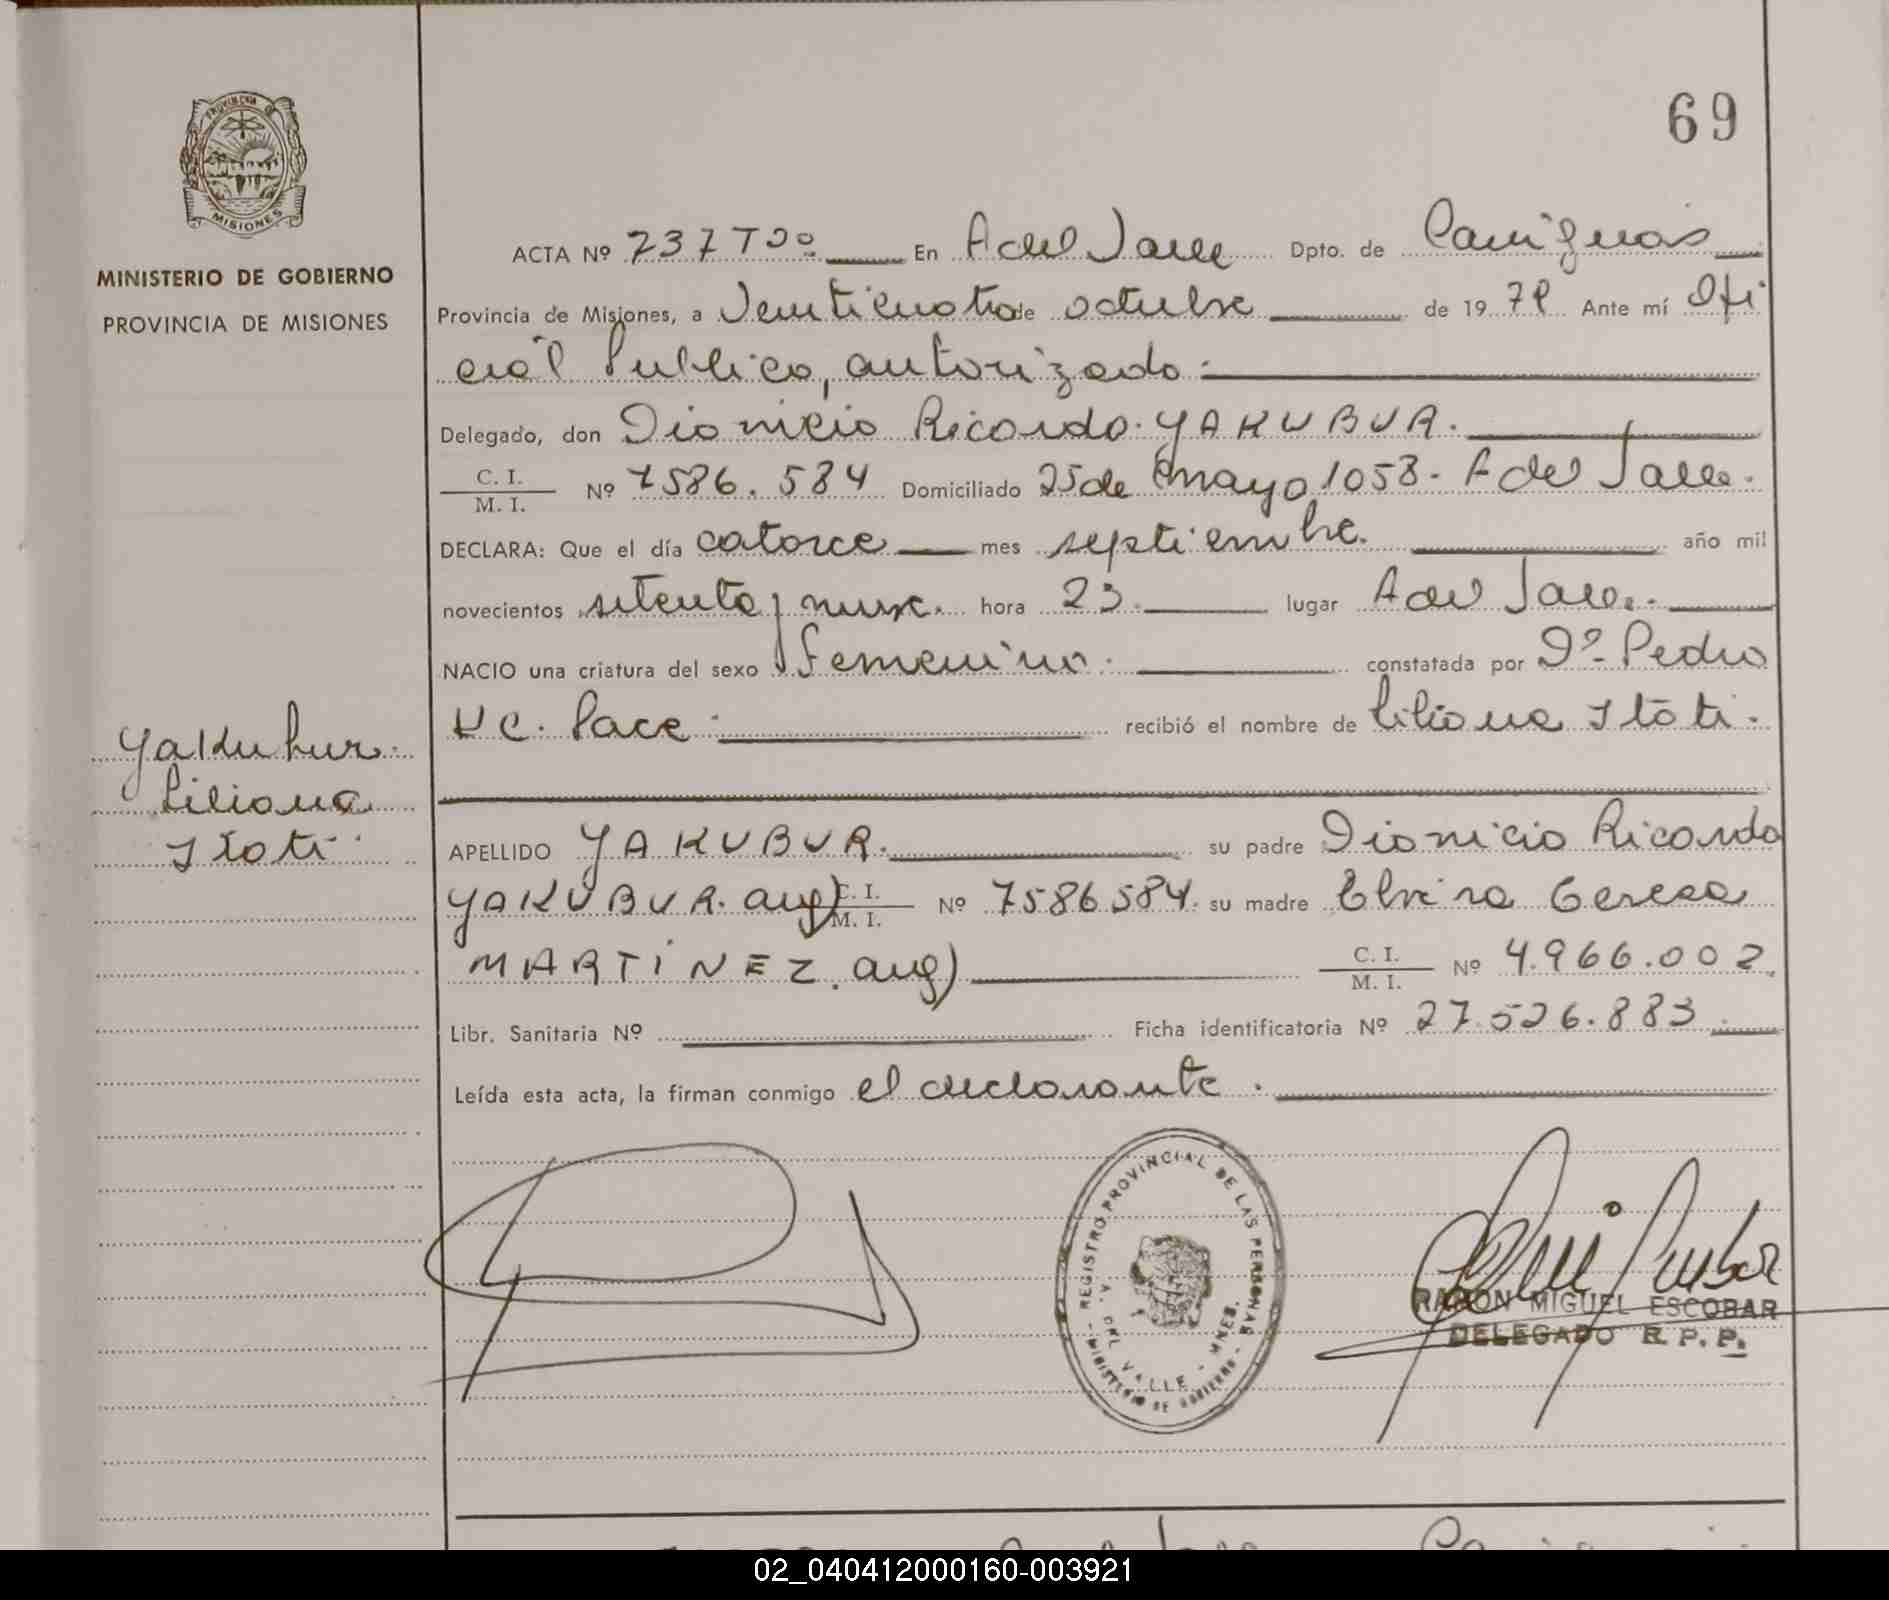 69
PROVINCIA DE
MISIONES
MINISTERIO DE GOBIERNO
PROVINCIA DE MISIONES
ACTA Nº 737 Tº En A del Valle Dpto. de Cainguás
Provincia de Misiones, a Veinticuatro de octubre de 1979 Ante mí Ofi
cial Publico, autorizado.
Delegado, don Dionicio Ricardo YAKUBUR.
C. I.
M. I. Nº 7586.584 Domiciliado 25 de mayo 1058- A del Valle.
DECLARA: Que el día catorce mes septiembre. año mil
novecientos setenta y nueve. hora 23. lugar A del Valle.
NACIO una criatura del sexo femenino. constatada por Dº- Pedro
H C. Pace. recibió el nombre de Liliana Itati.
Yakubur
Liliana
Itati
APELLIDO YAKUBUR. su padre Dionicio Ricardo
YAKUBUR. arg) C. I.
M. I. Nº 7586584. su madre Elvira Teresa
MARTÍNEZ. arg) C. I.
M. I. Nº 4.966.002
Libr. Sanitaria Nº Ficha identificatoria Nº 27.526.883
Leída esta acta, la firman conmigo el declarante.
REGISTRO PROVINCIAL DE LAS PERSONAS
A. DEL VALLE - MNES.
- MINISTERIO DE GOBIERNO -
RAMON MIGUEL ESCOBAR
DELEGADO R. P. P.
02_040412000160-003921